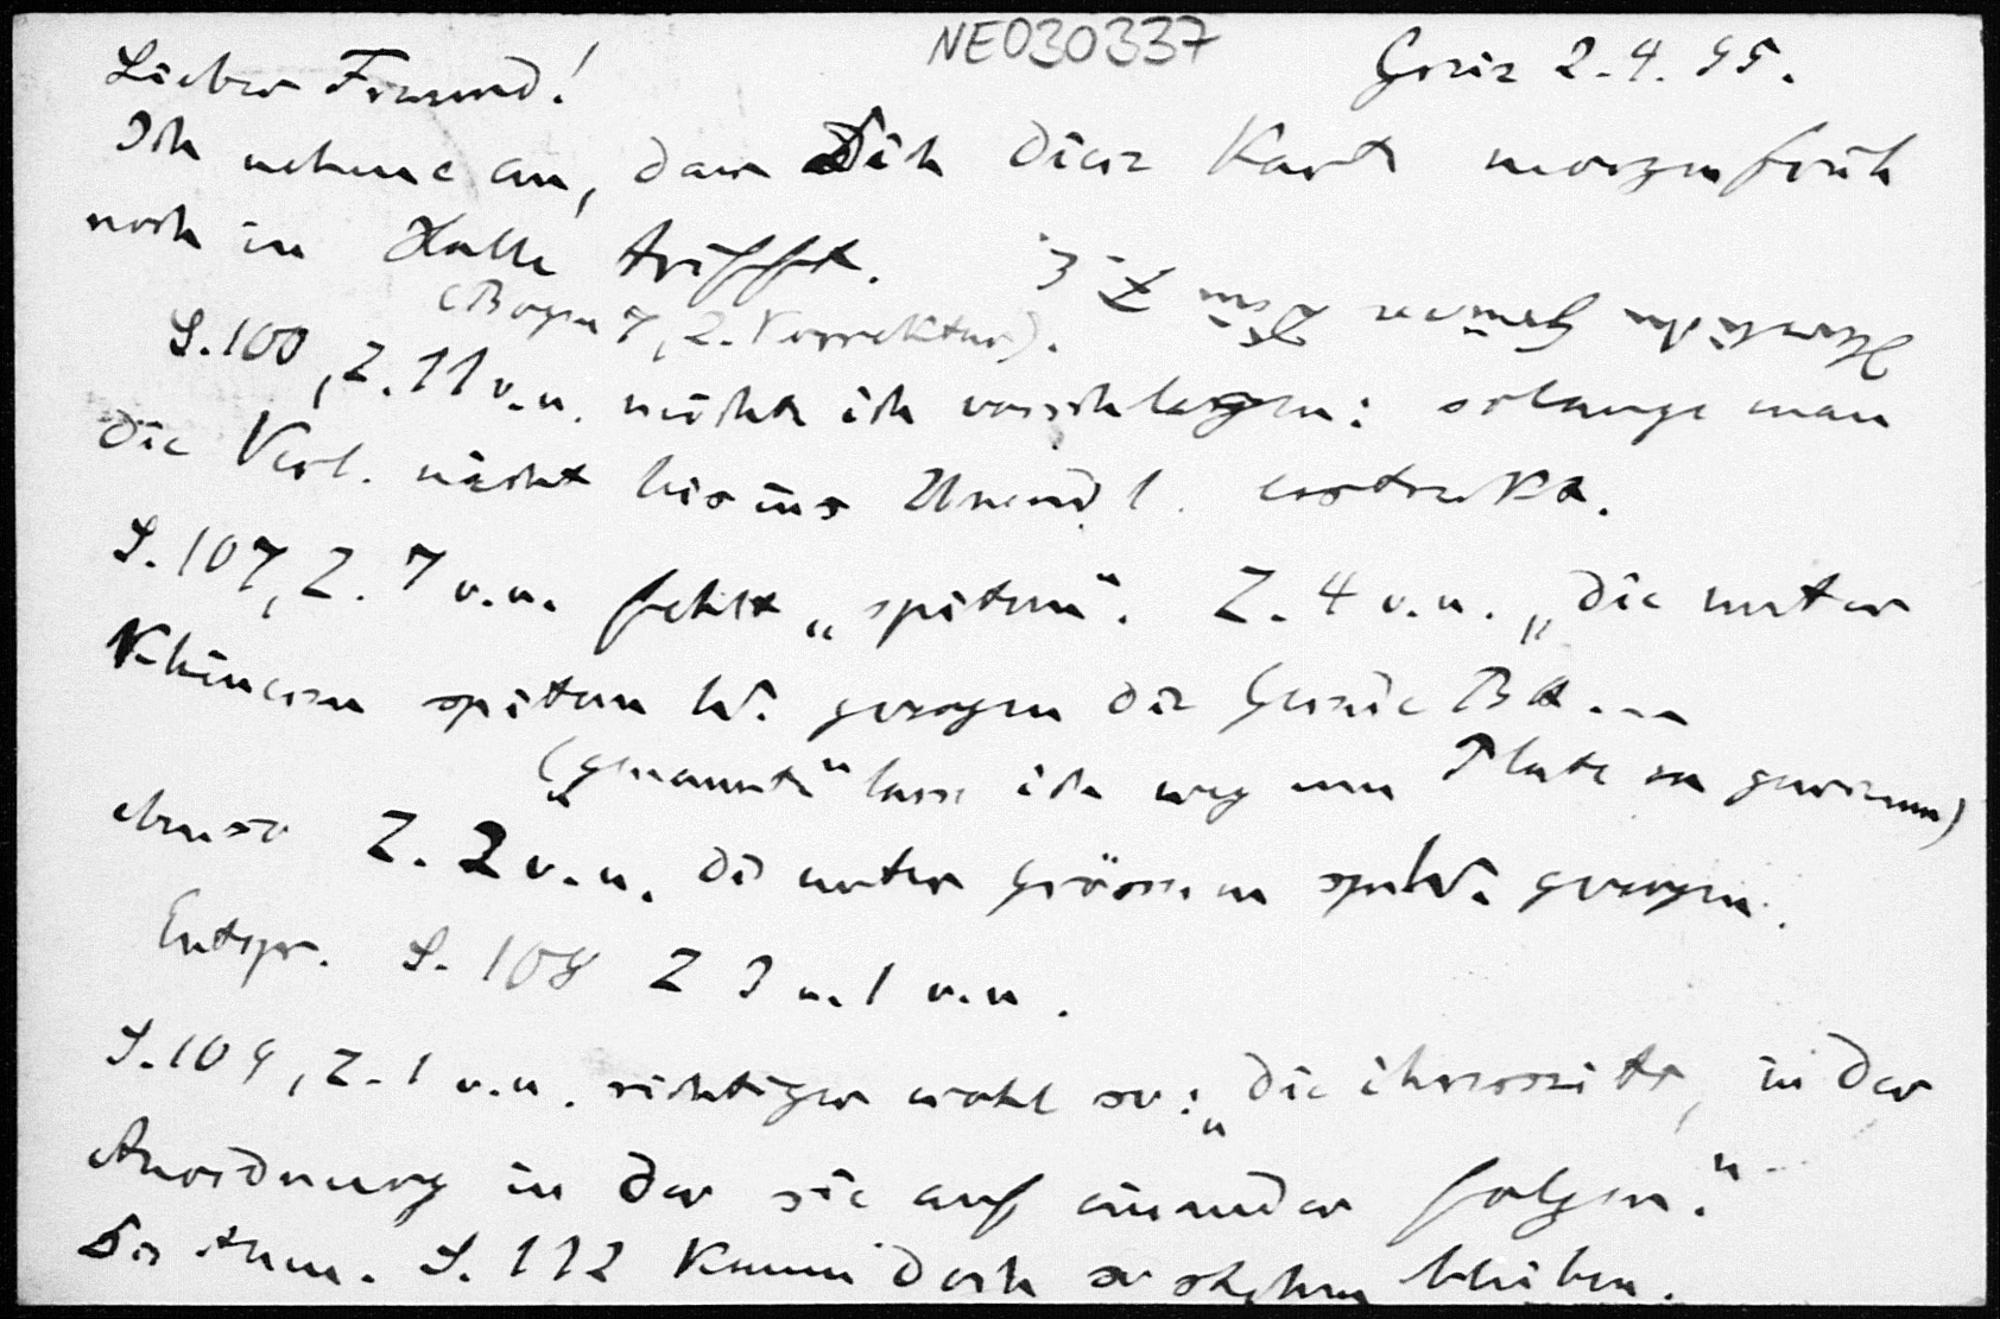 NE030337
Greiz 2.4.55.
Lieber Freund!
Ich nehme an, dass Dich diese Karte morgen früh
noch in Halle trifft.
Herzlichst
(Bogen 7, 2. Korrektur).
S. 100, Z. 11 v.u. möchte ich vorschlagen: solange man
die Verl. nicht bis ins Unendl. erstreckt.
S. 107, Z. 7 v.u. fehlt „spitzen“. Z. 4 v.u. „die unter
kleineren spitzen W. gezogen die Gerade B
(„genannte“ lasse ich weg um Platz zu gewinnen)
ebenso Z. 2 v.u. die unter grösserem sp. W. gezogen.
Entspr. S. 108 Z 3 u. 1 v.u.
S. 109, Z. 1 v.u. richtiger wohl so: „die ihrerseits, in der
Anordnung in der sie auf einander folgen.“
Die Anm. S. 112 kann doch so stehen bleiben.